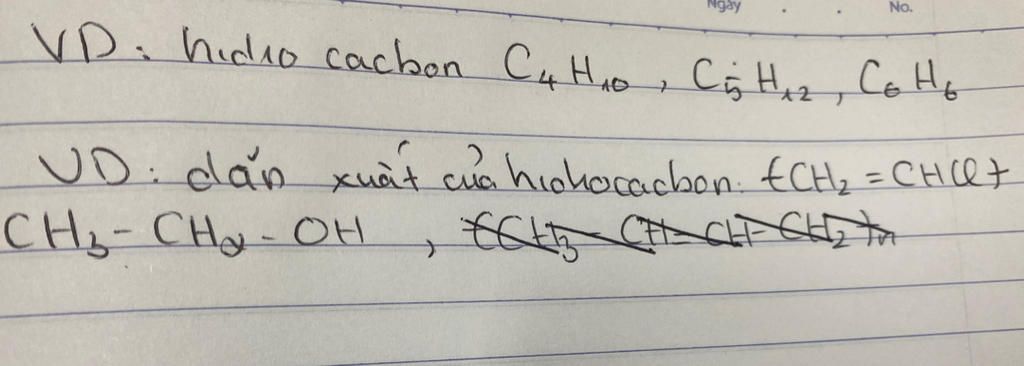 Ngày . . No.
VD: hidro cacbon C₄H₁₀, C₅H₁₂, C₆H₆
VD: dẫn xuất của hiđrocacbon: (CH₂=CHCl)
CH₃-CH₂-OH,